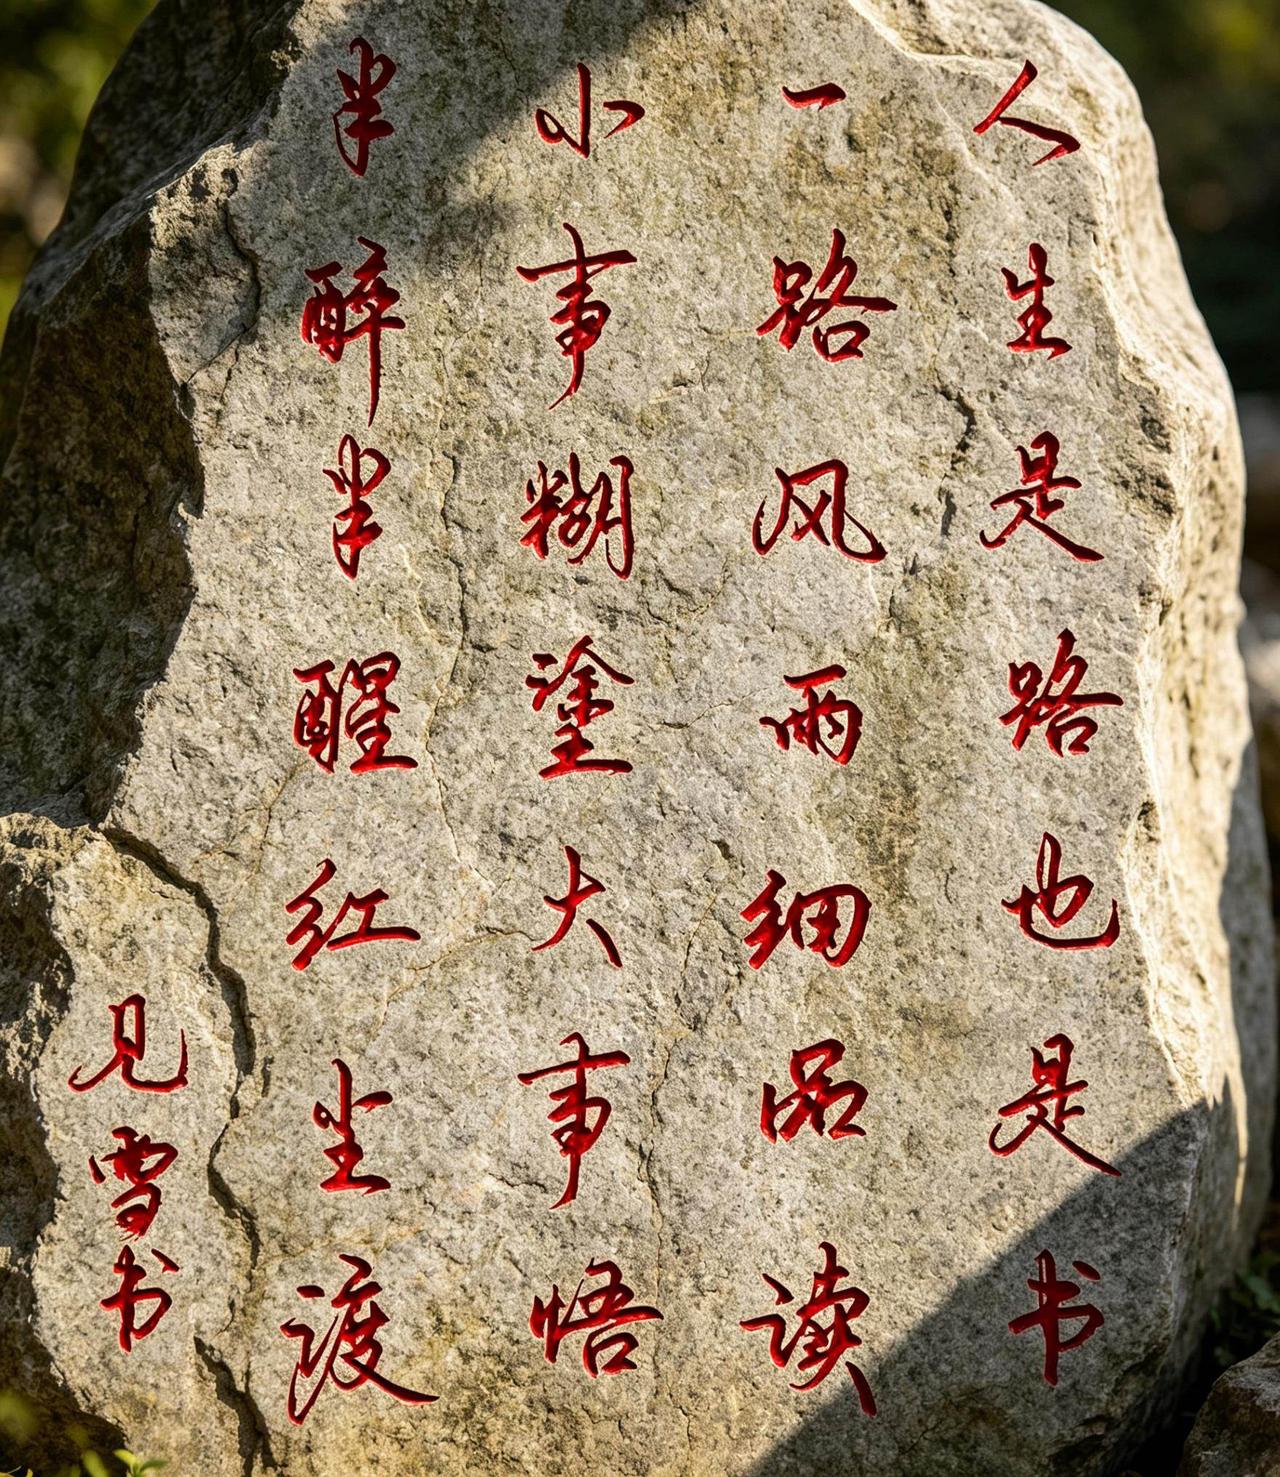 人生是路也是书
一路风雨细品读
小事糊塗大事悟
半醉半醒红尘渡
见雪书